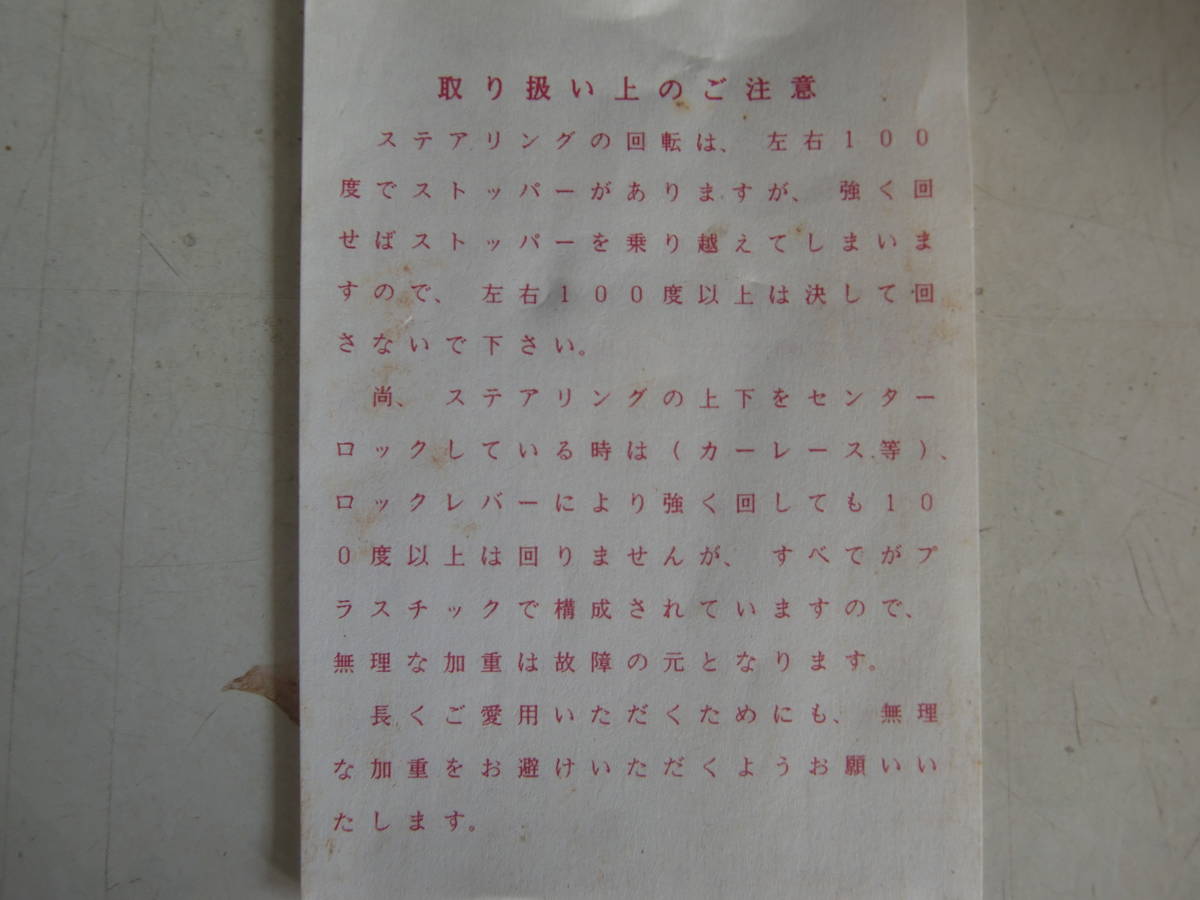 取り扱い上のご注意
ステアリングの回転は、左右１００
度でストッパーがありますが、強く回
せばストッパーを乗り越えてしまいま
すので、左右１００度以上は決して回
さないで下さい。
尚、ステアリングの上下をセンター
ロックしている時は（カーレース等）、
ロックレバーにより強く回しても１０
０度以上は回りませんが、すべてがプ
ラスチックで構成されていますので、
無理な加重は故障の元となります。
長くご愛用いただくためにも、無理
な加重をお避けいただくようお願いい
たします。